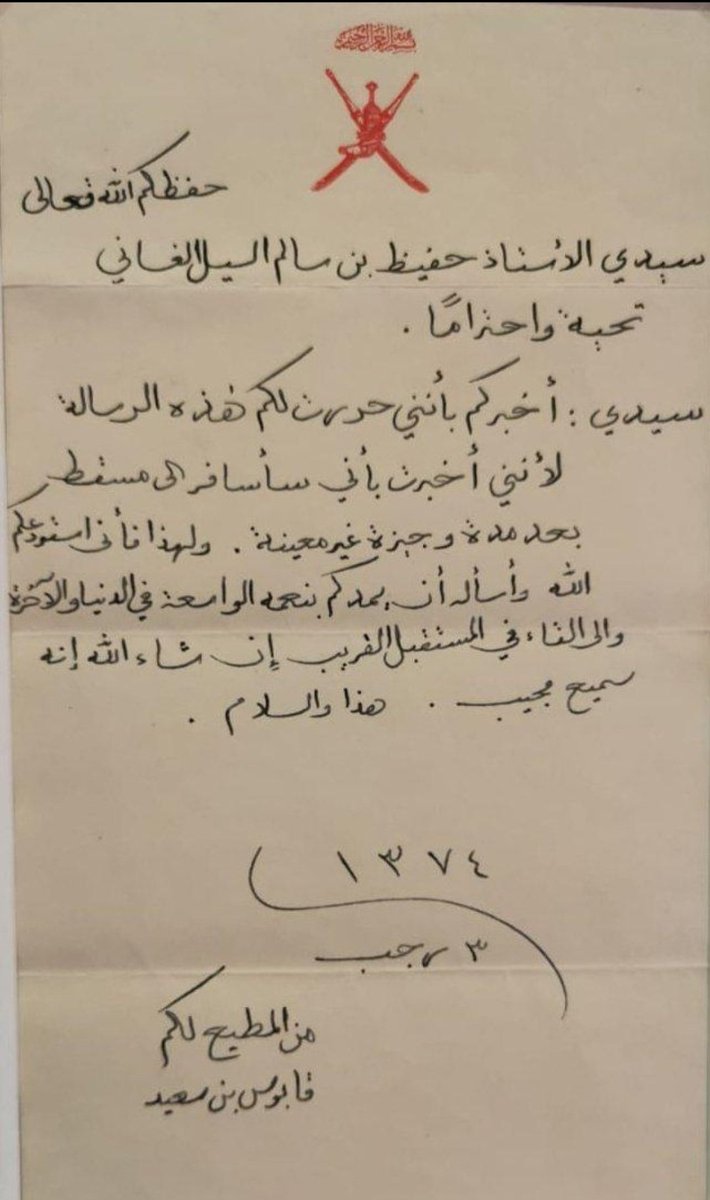 بسم الله الرحمن الرحيم
حفظكم الله تعالى
سيدي الأستاذ حفيظ بن سالم السيل الغساني
تحية واحترامًا .
سيدي : أخبركم بأنني حررت لكم هذه الرسالة
لأنني أخبرت بأني سأسافر الى مسقط
بعد مدة وجيزة غير معينة . ولهذا فأني استودعكم
الله وأسأله أن يمدكم بنعمه الواسعة في الدنيا والآخرة
والى اللقاء في المستقبل القريب إن شاء الله إنه
سميع مجيب . هذا والسلام .
١٣٧٤
٣ رجب
من المطيع لكم
قابوس بن سعيد